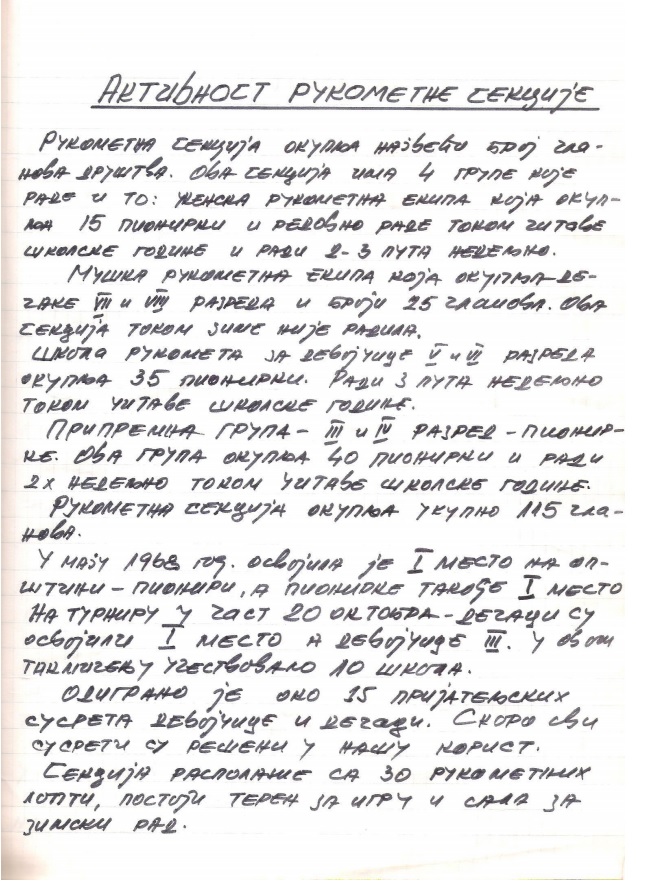 АКТИВНОСТ РУКОМЕТНЕ СЕКЦИЈЕ
РУКОМЕТНА СЕКЦИЈА ОКУПЉА НАЈВЕЋИ БРОЈ ЧЛА-
НОВА ДРУШТВА. ОВА СЕКЦИЈА ИМА 4 ГРУПЕ КОЈЕ
РАДЕ И ТО: ЖЕНСКА РУКОМЕТНА ЕКИПА КОЈА ОКУП-
ЉА 15 ПИОНИРКИ И РЕДОВНО РАДЕ ТОКОМ ЧИТАВЕ
ШКОЛСКЕ ГОДИНЕ И РАДИ 2-3 ПУТА НЕДЕЉНО.
МУШКА РУКОМЕТНА ЕКИПА КОЈА ОКУПЉА ДЕ-
ЧАКЕ VII И VIII РАЗРЕДА И БРОЈИ 25 ЧЛАНОВА. ОВА
СЕКЦИЈА ТОКОМ ЗИМЕ НИЈЕ РАДИЛА.
ШКОЛА РУКОМЕТА ЗА ДЕВОЈЧИЦЕ V И VI РАЗРЕДА
ОКУПЉА 35 ПИОНИРКИ. РАДИ 3 ПУТА НЕДЕЉНО
ТОКОМ ЧИТАВЕ ШКОЛСКЕ ГОДИНЕ.
ПРИПРЕМНА ГРУПА - III И IV РАЗРЕД - ПИОНИР-
КЕ. ОВА ГРУПА ОКУПЉА 40 ПИОНИРКИ И РАДИ
2X НЕДЕЉНО ТОКОМ ЧИТАВЕ ШКОЛСКЕ ГОДИНЕ.
РУКОМЕТНА СЕКЦИЈА ОКУПЉА УКУПНО 115 ЧЛА-
НОВА.
У МАЈУ 1968 ГОД. ОСВОЈИЛА ЈЕ I МЕСТО НА ОП-
ШТИНИ - ПИОНИРИ, А ПИОНИРКЕ ТАКОЂЕ I МЕСТО
НА ТУРНИРУ У ЧАСТ 20 ОКТОБРА - ДЕЧАЦИ СУ
ОСВОЈИЛИ I МЕСТО А ДЕВОЈЧИЦЕ III. У ОВОМ
ТАКМИЧЕЊУ УЧЕСТВОВАЛО 10 ШКОЛА.
ОДИГРАНО ЈЕ ОКО 15 ПРИЈАТЕЉСКИХ
СУСРЕТА ДЕВОЈЧИЦЕ И ДЕЧАЦИ. СКОРО СВИ
СУСРЕТИ СУ РЕШЕНИ У НАШУ КОРИСТ.
СЕКЦИЈА РАСПОЛАЖЕ СА 30 РУКОМЕТНИХ
ЛОПТИ, ПОСТОЈИ ТЕРЕН ЗА ИГРУ И САЛА ЗА
ЗИМСКИ РАД.